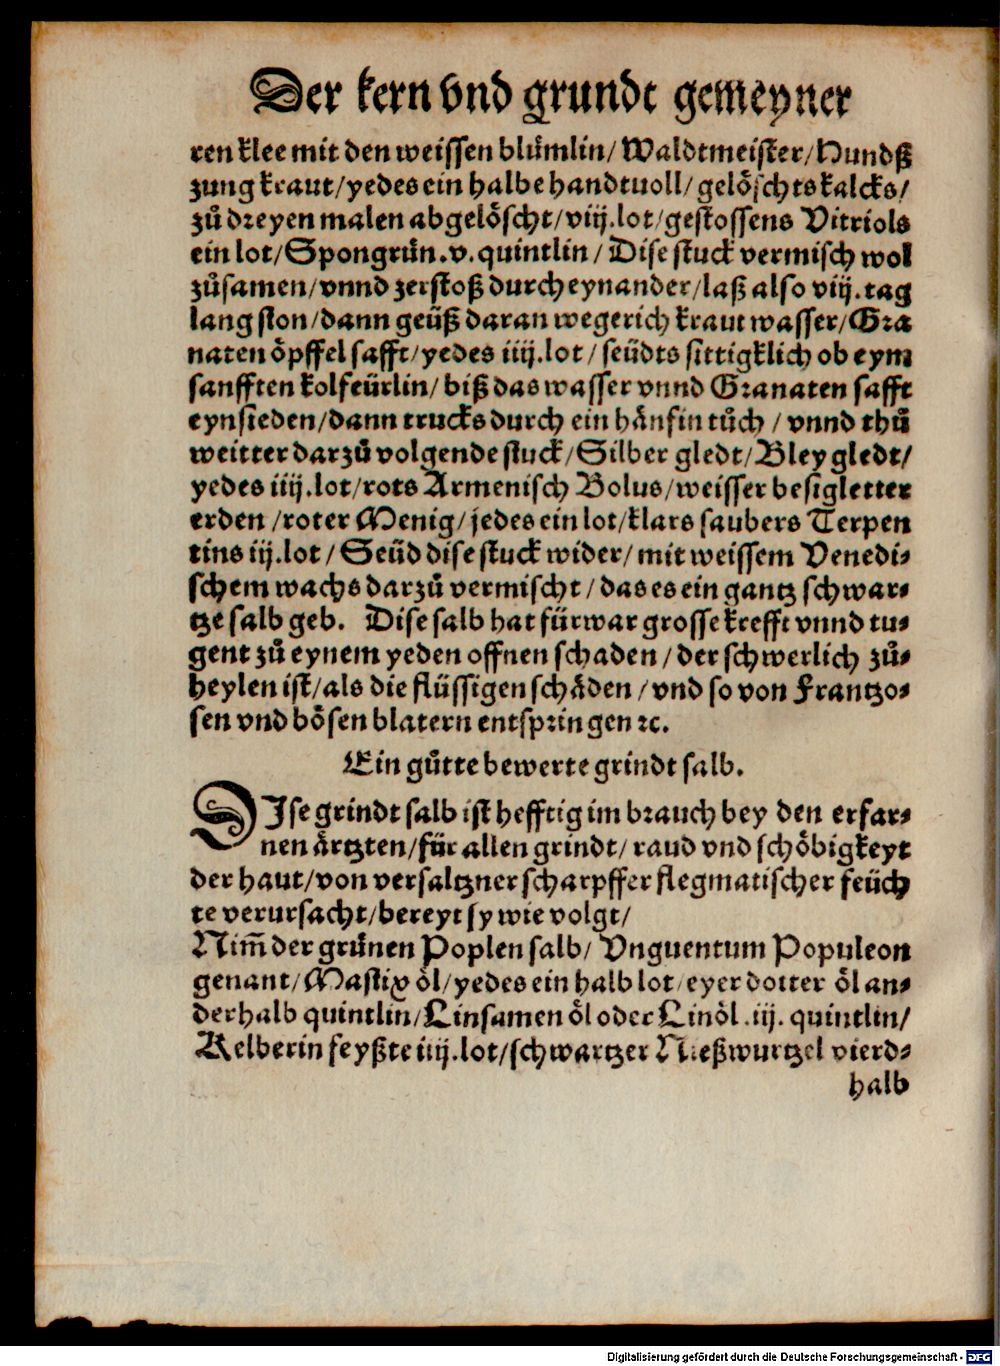 Der kern vnd grundt gemeyner
ren klee mit den weissen blůmlin/ Waldtmeister/ Hundß
zung kraut/ yedes ein halbe handtuoll/ gelöschts kalcks/
zů dreyen malen abgelöscht/ viij. lot/ gestossens Vitriols
ein lot/ Spongrün. v. quintlin/ Dise stuck vermisch wol
zůsamen/ vnnd zerstoß durch eynander/ laß also viij. tag
lang ston/ dann geüß daran wegerich kraut wasser/ Gra
naten öpffel safft/ yedes iiij. lot/ seüdts sittigklich ob eym
sanfften kolfeürlin/ biß das wasser vnnd Granaten safft
eynsieden/ dann trucks durch ein hänfin tůch / vnnd thů
weitter darzů volgende stuck/ Silber gledt/ Bley gledt/
yedes iiij. lot/ rots Armenisch Bolus/ weisser besigletter
erden / roter Menig/ jedes ein lot/ klars saubers Terpen
tins iij. lot / Seüd dise stuck wider/ mit weissem Venedi-
schem wachs darzů vermischt / das es ein gantz schwar-
tze salb geb. Dise salb hat fürwar grosse krefft vnnd tu-
gent zů eynem yeden offnen schaden / der schwerlich zů-
heylen ist/ als die flüssigen schäden / vnd so von Frantzo-
sen vnd bösen blatern entspringen ꝛc.
Ein gůtte bewerte grindt salb.
DJse grindt salb ist hefftig im brauch bey den erfar-
nen ärtzten/ für allen grindt/ raud vnd schöbigkeyt
der haut/ von versaltzner scharpffer flegmatischer feüch
te verursacht/ bereyt sy wie volgt/
Nim̃ der grünen Poplen salb/ Vnguentum Populeon
genant/ Mastix öl/ yedes ein halb lot/ eyer dotter öl an-
derhalb quintlin/ Linsamen öl oder Linöl .iij. quintlin/
Kelberin feyßte iiij. lot/ schwartzer Nießwurtzel vierd-
halb
Digitalisierung gefördert durch die Deutsche Forschungsgemeinschaft - DFG